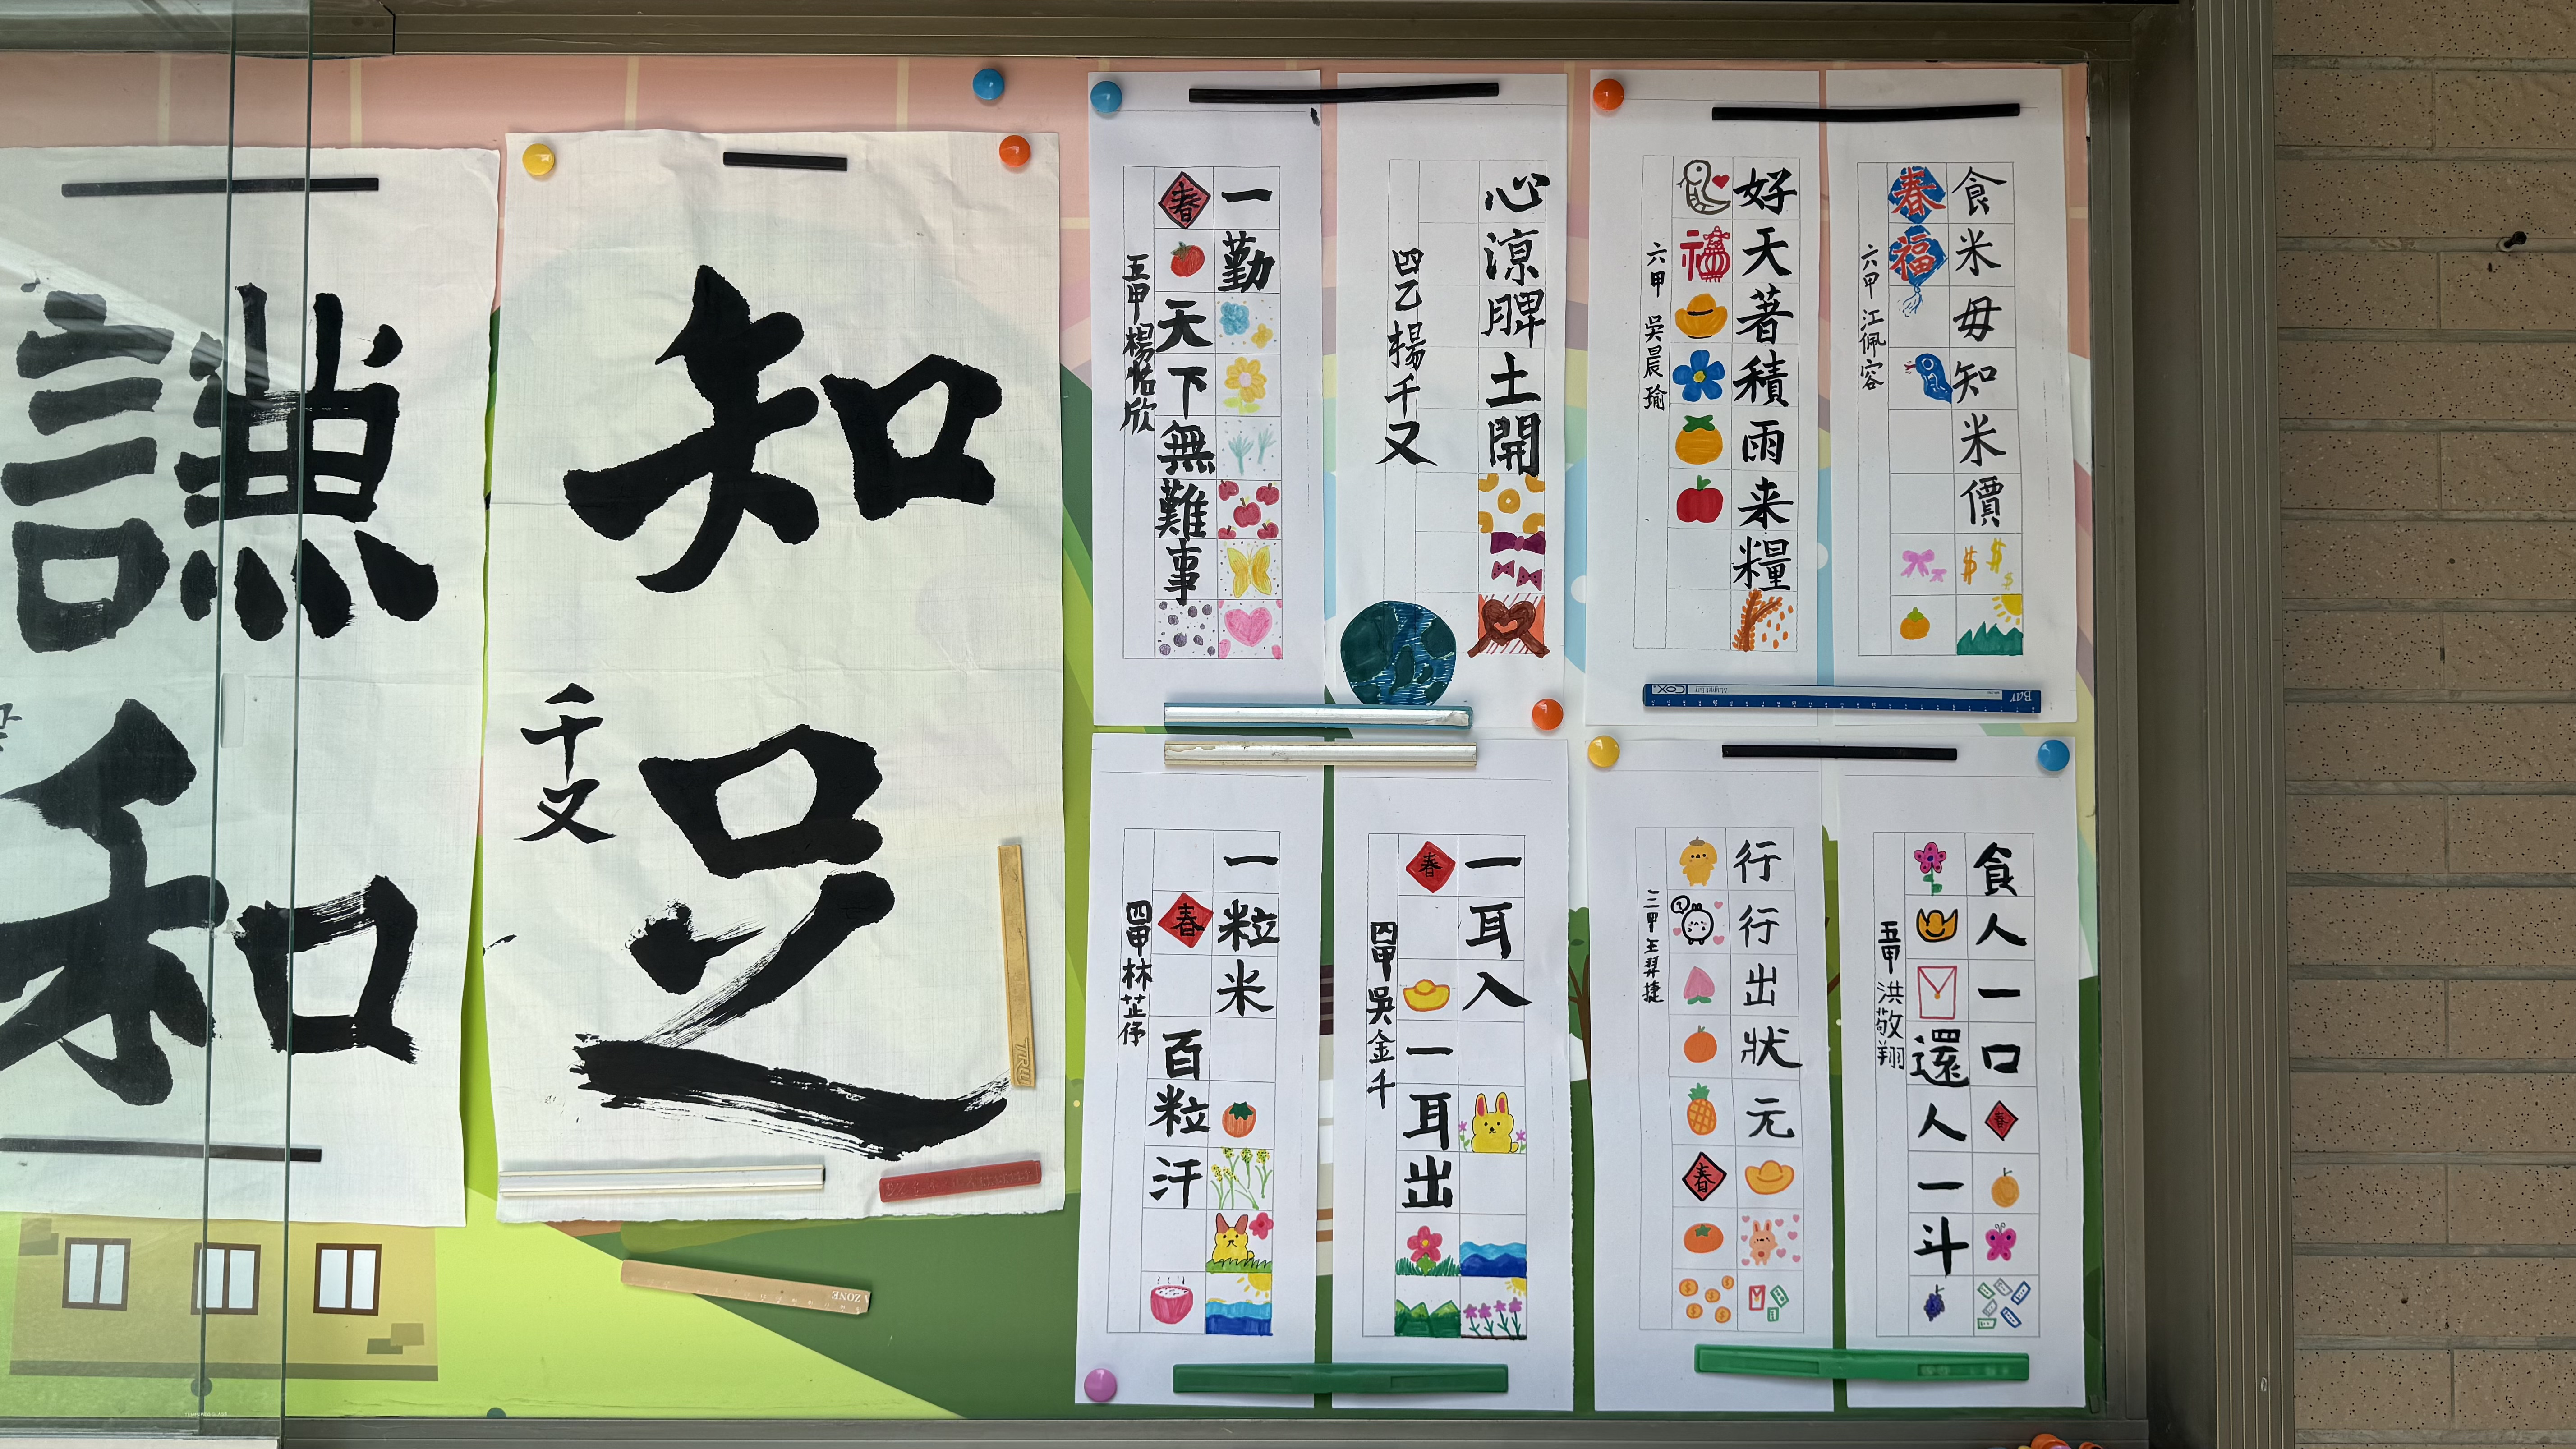 謙和
知足
千又
一勤
春天下無難事
五甲楊怡欣
心涼脾土開
四乙楊千又
好天著積雨来糧
福
六甲 吳晨瑜
食米毋知米價
春福
六甲 江佩容
一粒米
春百粒汗
四甲林芷伃
一耳入
春一耳出
四甲吳金千
行行出狀元
春
三甲王羿捷
食人一口春
還人一斗
五甲洪敬翔